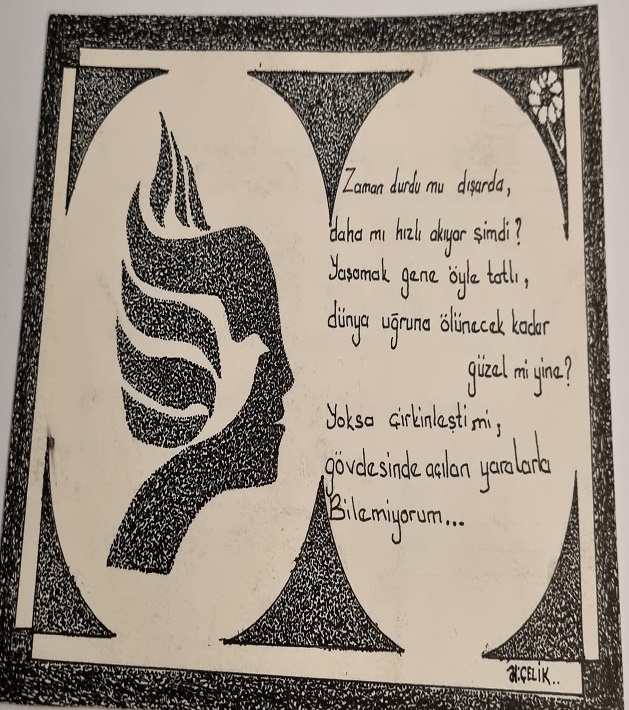 Zaman durdu mu dışarda,
daha mı hızlı akıyor şimdi?
Yaşamak gene öyle tatlı,
dünya uğruna ölünecek kadar
güzel mi yine?
Yoksa çirkinleşti mi,
gövdesinde açılan yaralarla
Bilemiyorum...
ÇELİK..